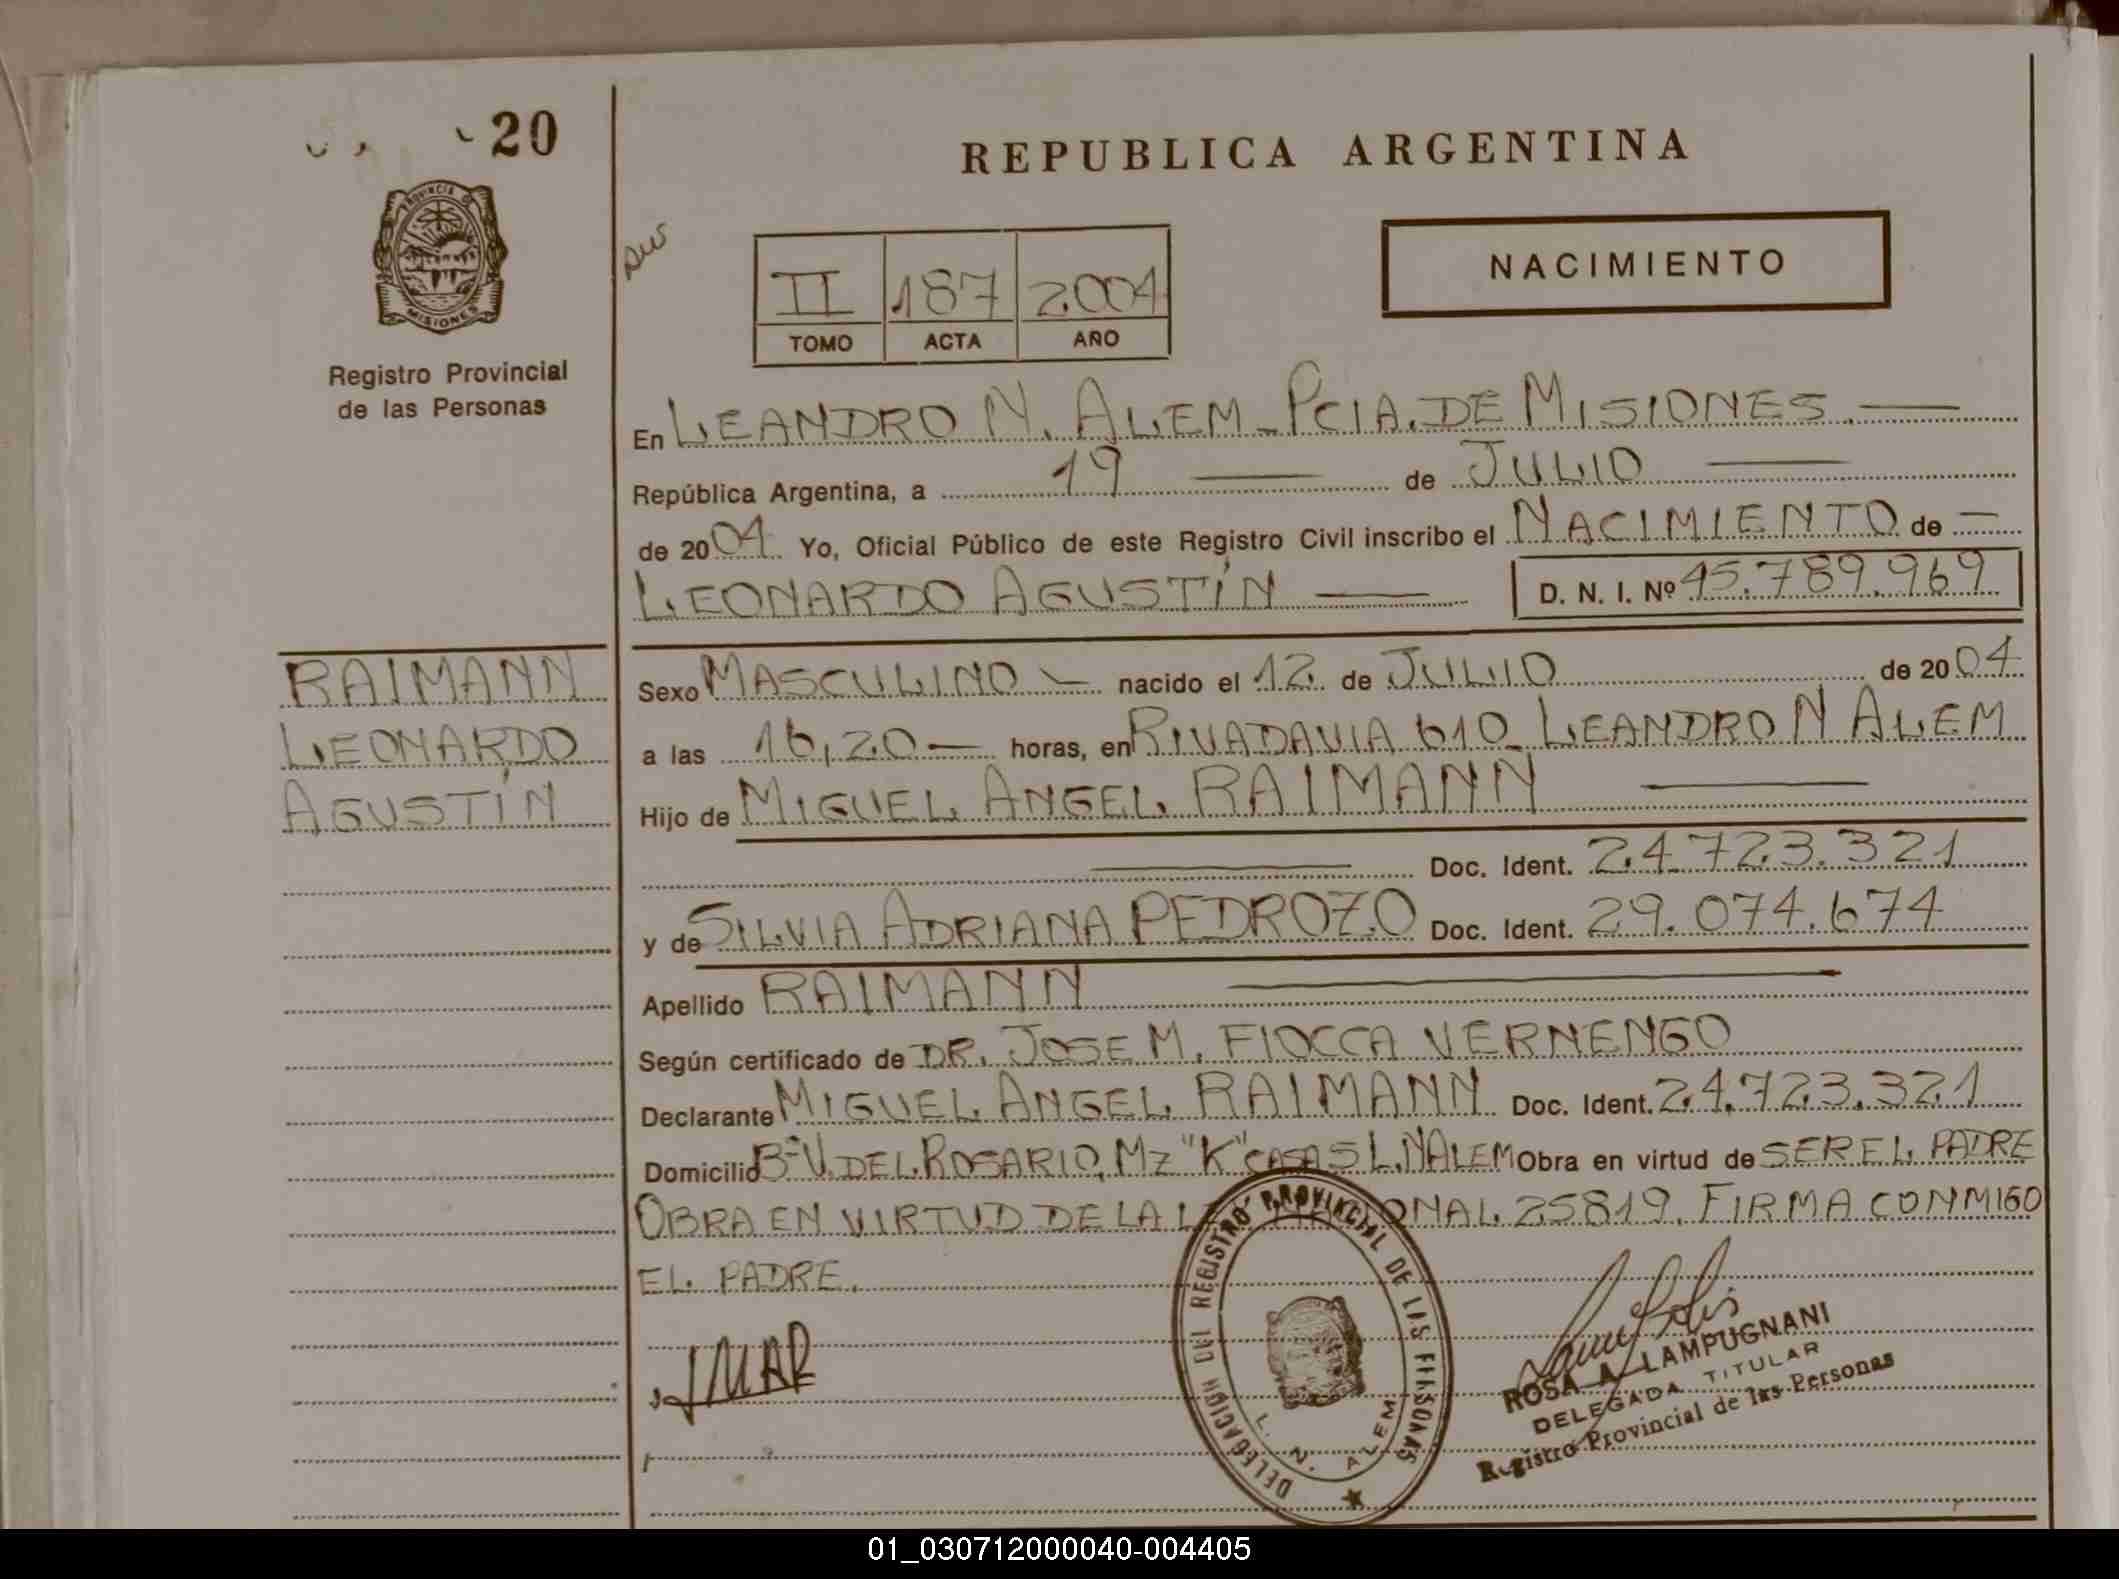 20
PROVINCIA D
MISIONES
Registro Provincial
de las Personas
REPUBLICA ARGENTINA
NACIMIENTO
II 187 2004
TOMO ACTA AÑO
En LEANDRO N. ALEM - PCIA. DE MISIONES.
República Argentina, a 19 de JULIO
de 2004 Yo, Oficial Público de este Registro Civil inscribo el NACIMIENTO de
LEONARDO AGUSTÍN D. N. I. Nº 45.789.969
RAIMANN
LEONARDO
AGUSTÍN
Sexo MASCULINO nacido el 12 de JULIO de 2004
a las 16,20 horas, en RIVADAVIA 610 - LEANDRO N ALEM
Hijo de MIGUEL ANGEL RAIMANN
Doc. Ident. 24.723.321
y de SILVIA ADRIANA PEDROZO Doc. Ident. 29.074.674
Apellido RAIMANN
Según certificado de DR. JOSE M. FIOCCA VERNENGO
Declarante MIGUEL ANGEL RAIMANN Doc. Ident. 24.723.321
Domicilio Bº V. DEL ROSARIO, Mz "K" CASA 5 L.N ALEM Obra en virtud de SER EL PADRE
OBRA EN VIRTUD DE LA 25819. FIRMA CONMIGO
EL PADRE.
DELEGACION DEL REGISTRO PROVINCIAL DE LAS PERSONAS
L. N. ALEM
ROSA A. LAMPUGNANI
DELEGADA TITULAR
Registro Provincial de las Personas
01_030712000040-004405